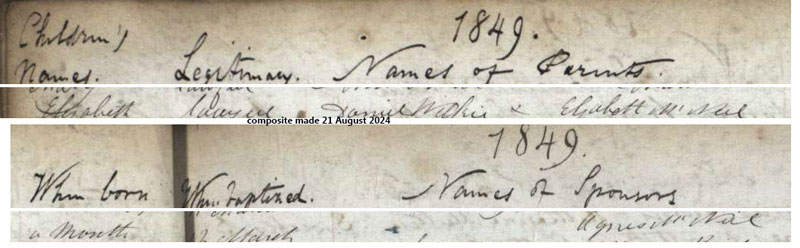 1849.
Children's
Names. Legitimacy. Names of Parents.
Elisabeth Lawful Daniel Wilkie & Elisabeth McNeil
composite made 21 August 2024
1849.
When born When baptized. Names of Sponsors
a Month March Agnes McNeil